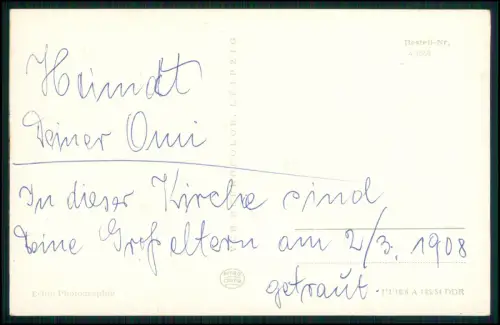 Heimat
Deiner Omi
In dieser Kirche sind
Deine Großeltern am 2/3. 1908
getraut.
Bestell-Nr.
Echte Photographie